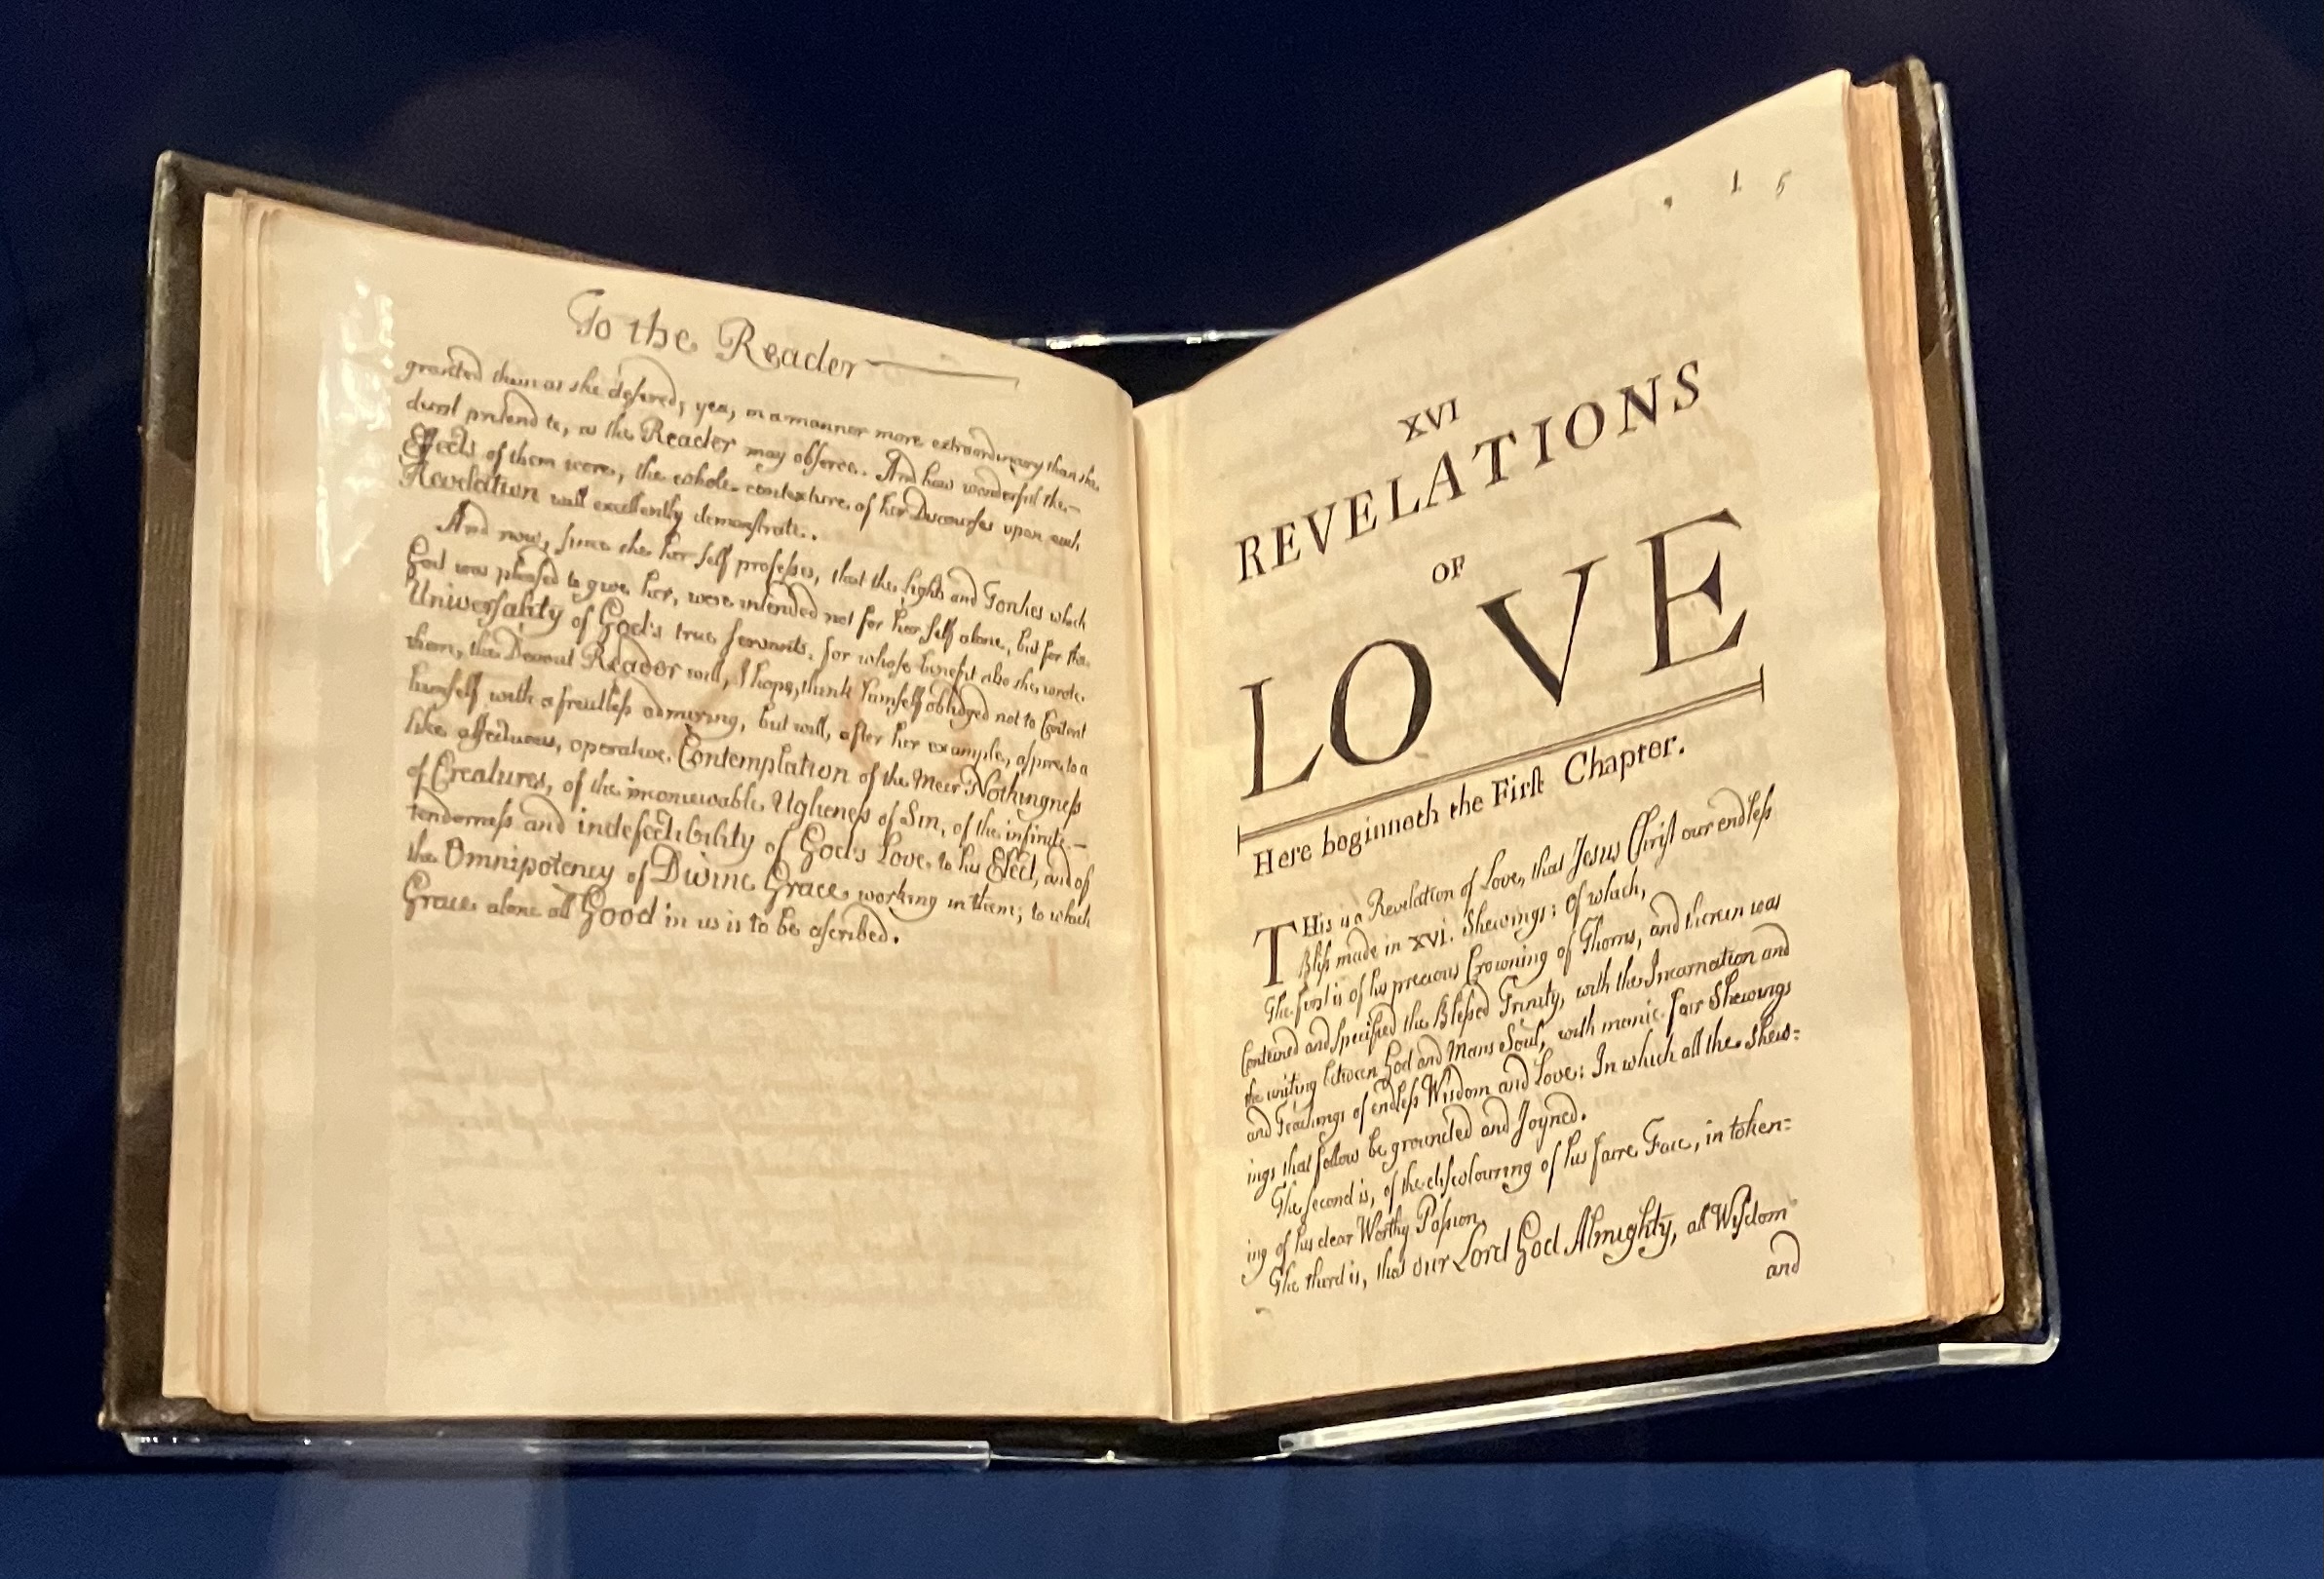 To the Reader
granted them as she desired; yea, in a manner more extraordinary than she
durst pretend to, as the Reader may observe. And how wonderful the
Effects of them were, the whole contexture of her Discourses upon each
Revelation will excellently demonstrate.
And now, since she her self professes, that the lights and Torches which
God was pleased to give her, were intended not for her self alone, but for the
Universality of God's true servants, for whose benefit also she wrote
them, the Devout Reader will, I hope, think himself obliged not to Content
himself with a fruitless admiring, but will, after her example, aspire to a
like affectuous, operative Contemplation of the Meer Nothingness
of Creatures, of the inconceivable Uglienes of Sin, of the infinite
tenderness and indefectibility of God's Love to his Elect, and of
the Omnipotency of Divine Grace working in them; to which
Grace alone all Good in us is to be ascribed.
1 5
XVI
REVELATIONS
OF
LOVE
Here beginneth the First Chapter.
THis is a Revelation of Love, that Jesus Christ our endless
Bliss made in XVI. Shewings; of which,
The first is of his precious Crowning of Thorns, and therein was
Conteined and specified the Blessed Trinity, with the Incarnation and
the uniting between God and Mans Soul, with manie fair Shewings
and Teachings of endless Wisdom and Love: In which all the shew:
ings that follow be grounded and Joyned.
The second is, of the discolouring of his faire Face, in token:
ing of his dear Worthy Passion.
The third is, that our Lord God Almighty, all Wisdom
and